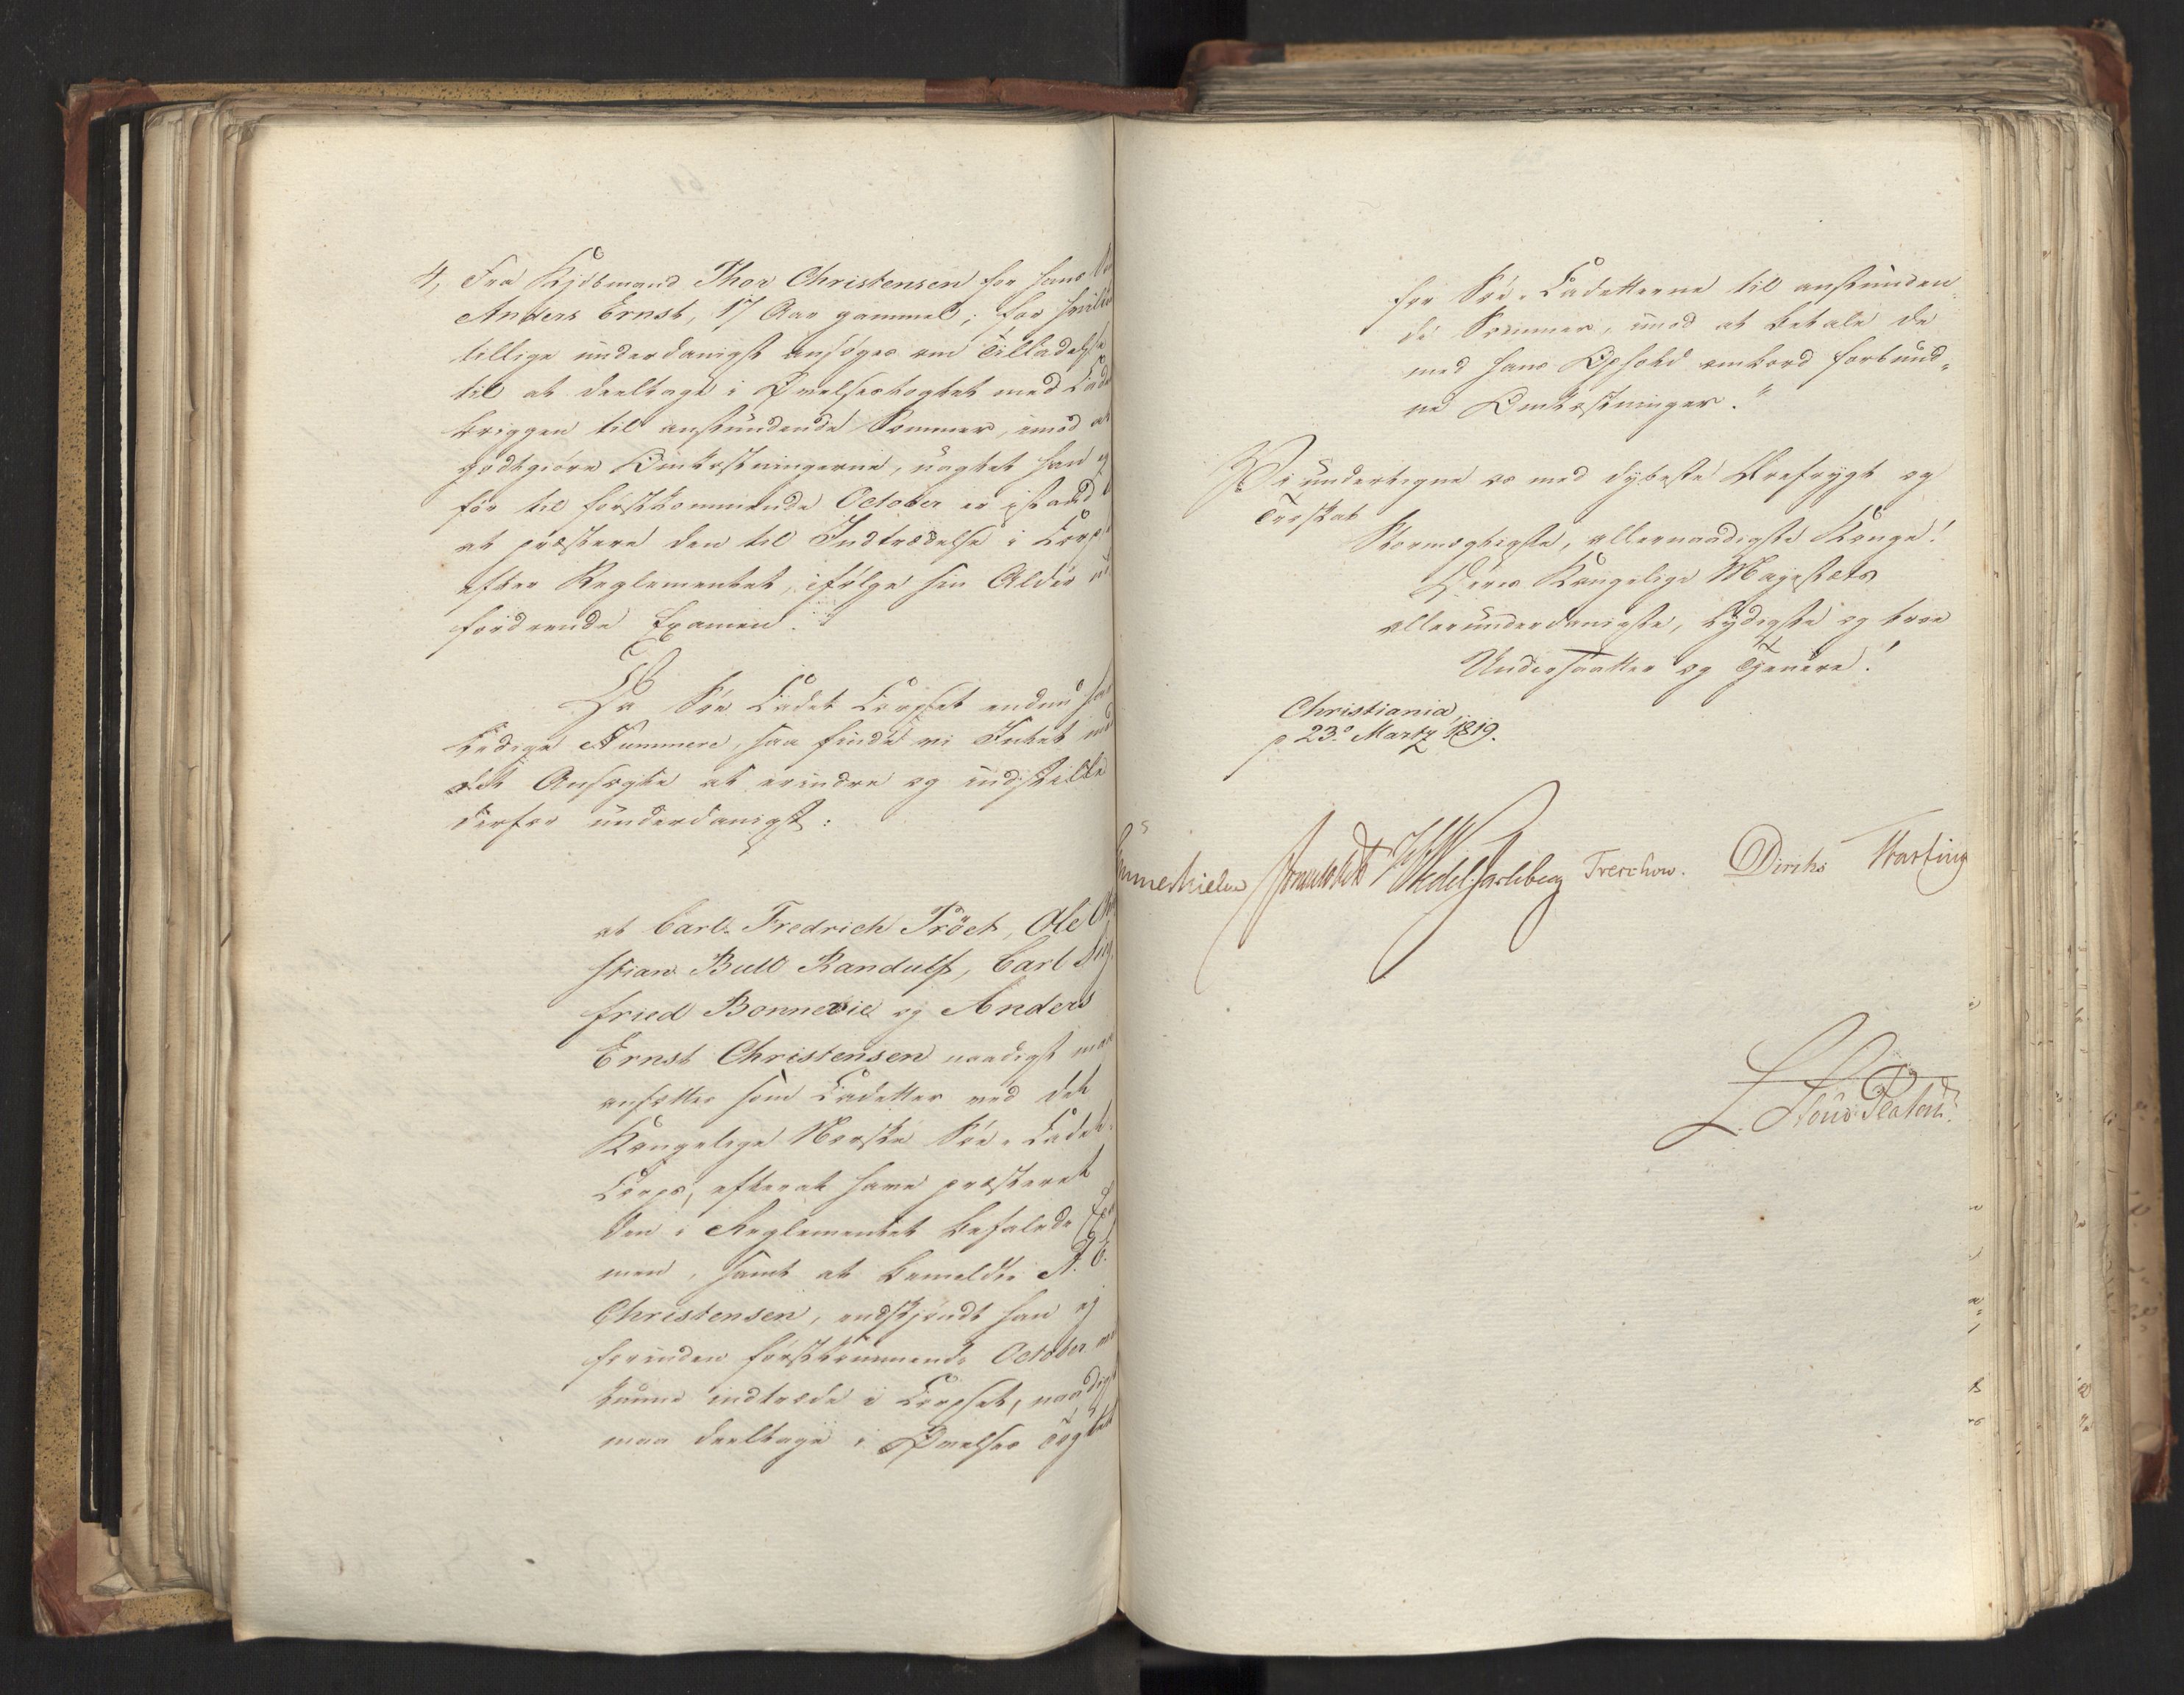 4, Fra Kjöbmand Thor Christensen for hans
Anders Ernst, 17 Aar gammel; for hvilken
tillige underdanigst ansøges om Tilladelse
til at deeltage i Øvelsestogtet med Cadet
briggen til anstundende Sommer, imod at
godtgiöre Omkostningerne, uagtet han ej
för til förstkommende October er istand
at præstere den til Indtrædelse i Corpset
efter Reglementet, ifølge sin Alder ud
fordrende Examen."
Da Søe Cadet Corpset endnu har
ledige Nummere, saa finde vi Intet ved
det Ansøgte at erindre og indstille
derfor underdanigst:
at Carl Fredrich Tröet, Ole
stian Bull Randulff, Carl Sieg
fried Bonnevie og Anders
Ernst Christensen naadigst maa
ansættes som Cadetter ved det
Kongelige Norske Söe-Cadet-
Corps, efterat have præsteret
den i Reglementet befalede Exa
men, samt at bemeldte A. E.
Christensen, endskjöndt han ej
forinden förstkommende October
kunne indtræde i Corpset, naadigst
maa deeltage i Øvelses Togtet
for Söe-Cadetterne til anstunden-
de Sommer, imod at betale de
med hans Ophold ombord forbund-
ne Omkostninger."
Vi undertegne os med dybeste Ærefrygt og
Troskab
Stormægtigste, allernaadigste Konge!
Deres Kongelige Majestæts
allerunderdanigste, lydigste og troe
Undersaatter og Tjenere!
Christiania,
p 23de Martz 1819.
Sommerhielm HWedel Jarlsberg Treschow. Diriks Krasting
L. Stoud Platou